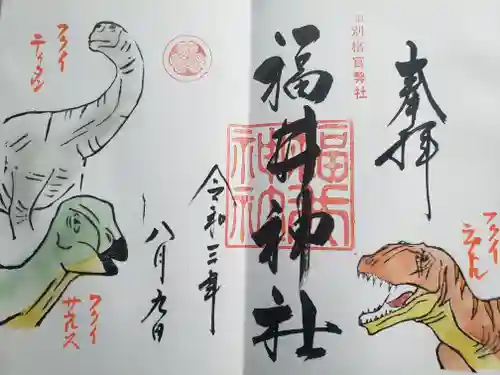 奉拝
旧別格官幣社
福井神社
福井神社
令和三年
八月九日
フクイ
ティタン
フクイ
サウルス
フクイ
ラプトル